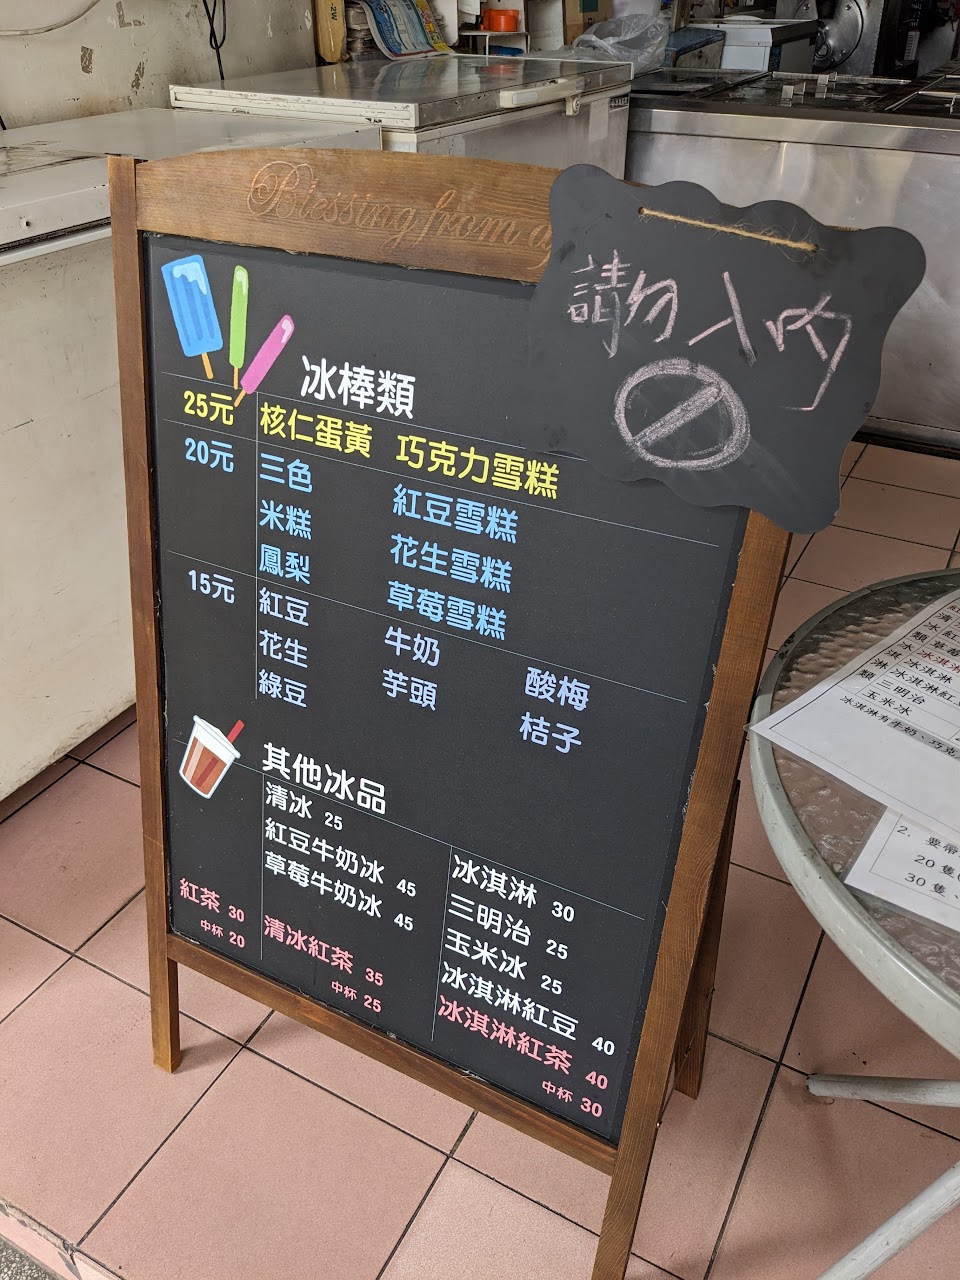 Blessing from
請勿入內
冰棒類
25元 核仁蛋黃 巧克力雪糕
20元 三色 紅豆雪糕
米糕 花生雪糕
鳳梨 草莓雪糕
15元 紅豆 牛奶 酸梅
花生 芋頭 桔子
綠豆
其他冰品
清冰 25
紅豆牛奶冰 45
草莓牛奶冰 45
紅茶 30
中杯 20
清冰紅茶 35
中杯 25
冰淇淋 30
三明治 25
玉米冰 25
冰淇淋紅豆 40
冰淇淋紅茶 40
中杯 30
清
冰 紅
類 草莓
冰 冰淇淋
淇 冰淇淋
淋 冰淇淋紅
類 三明治
玉米冰
冰淇淋有牛奶、巧克
2. 要帶
20 隻
30 隻、